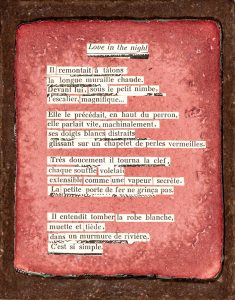 Love in the night
Il remontait à tâtons
la longue muraille chaude.
Devant lui, sous le petit nimbe,
l'escalier, magnifique...
Elle le précédait, en haut du perron,
elle parlait vite, machinalement,
ses doigts blancs distraits
glissant sur un chapelet de perles vermeilles.
Très doucement il tourna la clef,
chaque souffle volelait
extensible comme une vapeur secrète.
La petite porte de fer ne grinça pas.
Il entendit tomber la robe blanche,
muette et tiède,
dans un murmure de rivière.
C'est si simple.